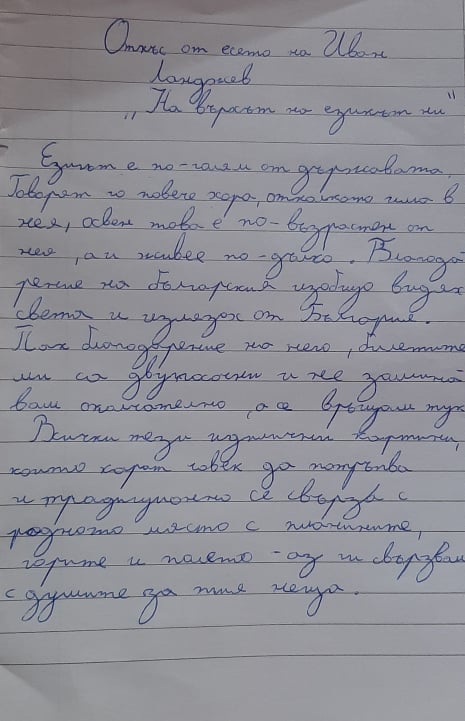 Откъс от есето на Иван
Ланджев
"На върхът на езикът ни"
Езикът е по-голям от държавата.
Говорят го повече хора, отколкото има в
нея, освен това е по-възрастен от
нея, а и живее по-дълго. Благода
рение на българския изобщо видях
света и излязох от България.
Пак благодарение на него, билетите
ми са двупосочни и не замина
вам окончателно, а се връщам тук
Всички тези идилични картини,
които карат човек да потръпва
и традиционно се свързва с
родното място с планините,
горите и полето - аз ги свързвам
с думите за тия неща.